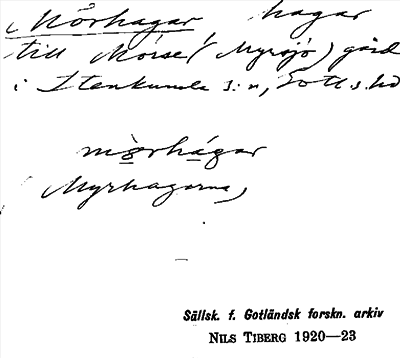 Mörhagar, hagar
till Mörse (Myrsjö) gård
i Stenkumla s:n, Gotl.s. hd
mörhágar
(Myrhagarna)
Sällsk. f. Gotländsk forskn. arkiv
NILS TIBERG 1920—23